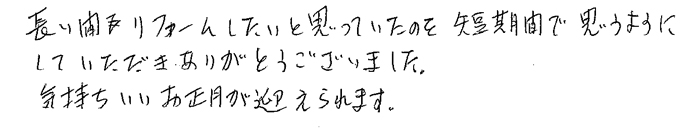 長い間リフォームしたいと思っていたのを短期間で思うように
していただきありがとうございました。
気持ちいいお正月が迎えられます。